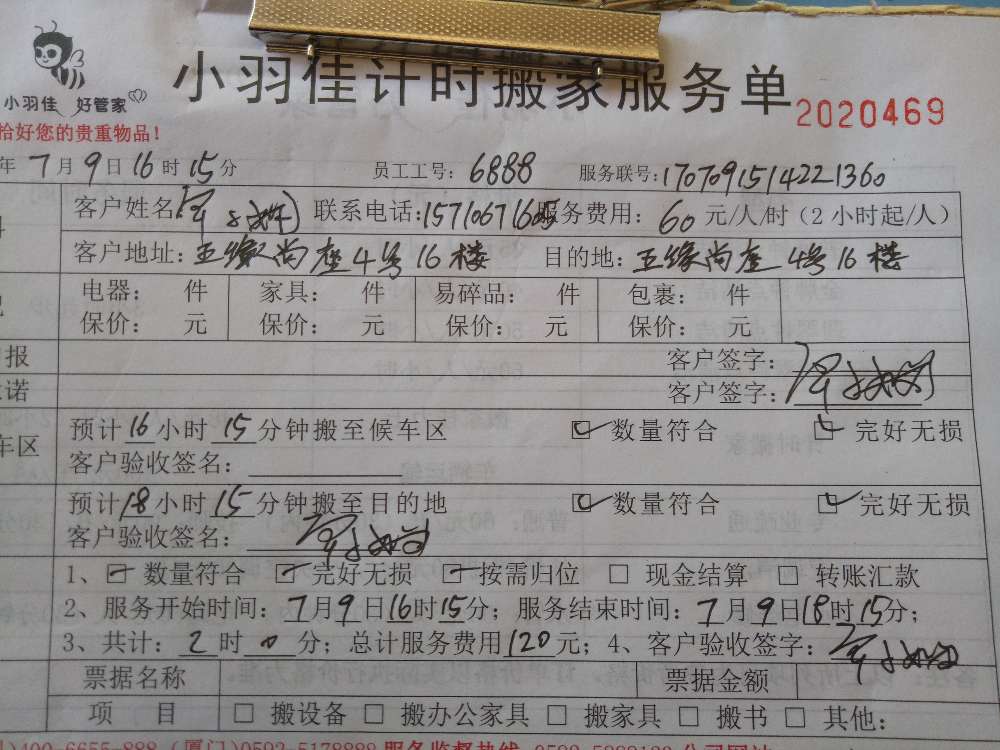 小羽佳 好管家
小羽佳计时搬家服务单 2020469
恰好您的贵重物品！
年7月9日16时15分 员工工号：6888 服务联号：1707091514221360
客户姓名 联系电话： 服务费用：60元/人/时（2小时起/人）
客户地址：五缘尚座4号16楼 目的地：五缘尚座4号16楼
电器： 件 家具： 件 易碎品： 件 包裹： 件
保价： 元 保价： 元 保价： 元 保价： 元
报 客户签字：
诺 客户签字：
车区 预计16小时15分钟搬至候车区 数量符合 完好无损
客户验收签名：
预计18小时15分钟搬至目的地 数量符合 完好无损
客户验收签名：
1、数量符合 完好无损 按需归位 □ 现金结算 □ 转账汇款
2、服务开始时间：7月9日16时15分；服务结束时间：7月9日18时15分；
3、共计：2时0分；总计服务费用120元；4、客户验收签字：
票据名称 票据金额
项目 □ 搬设备 □ 搬办公家具 □ 搬家具 □ 搬书 □ 其他：
)400-6655-888 (厦门)0592-5178888 服务监督热线